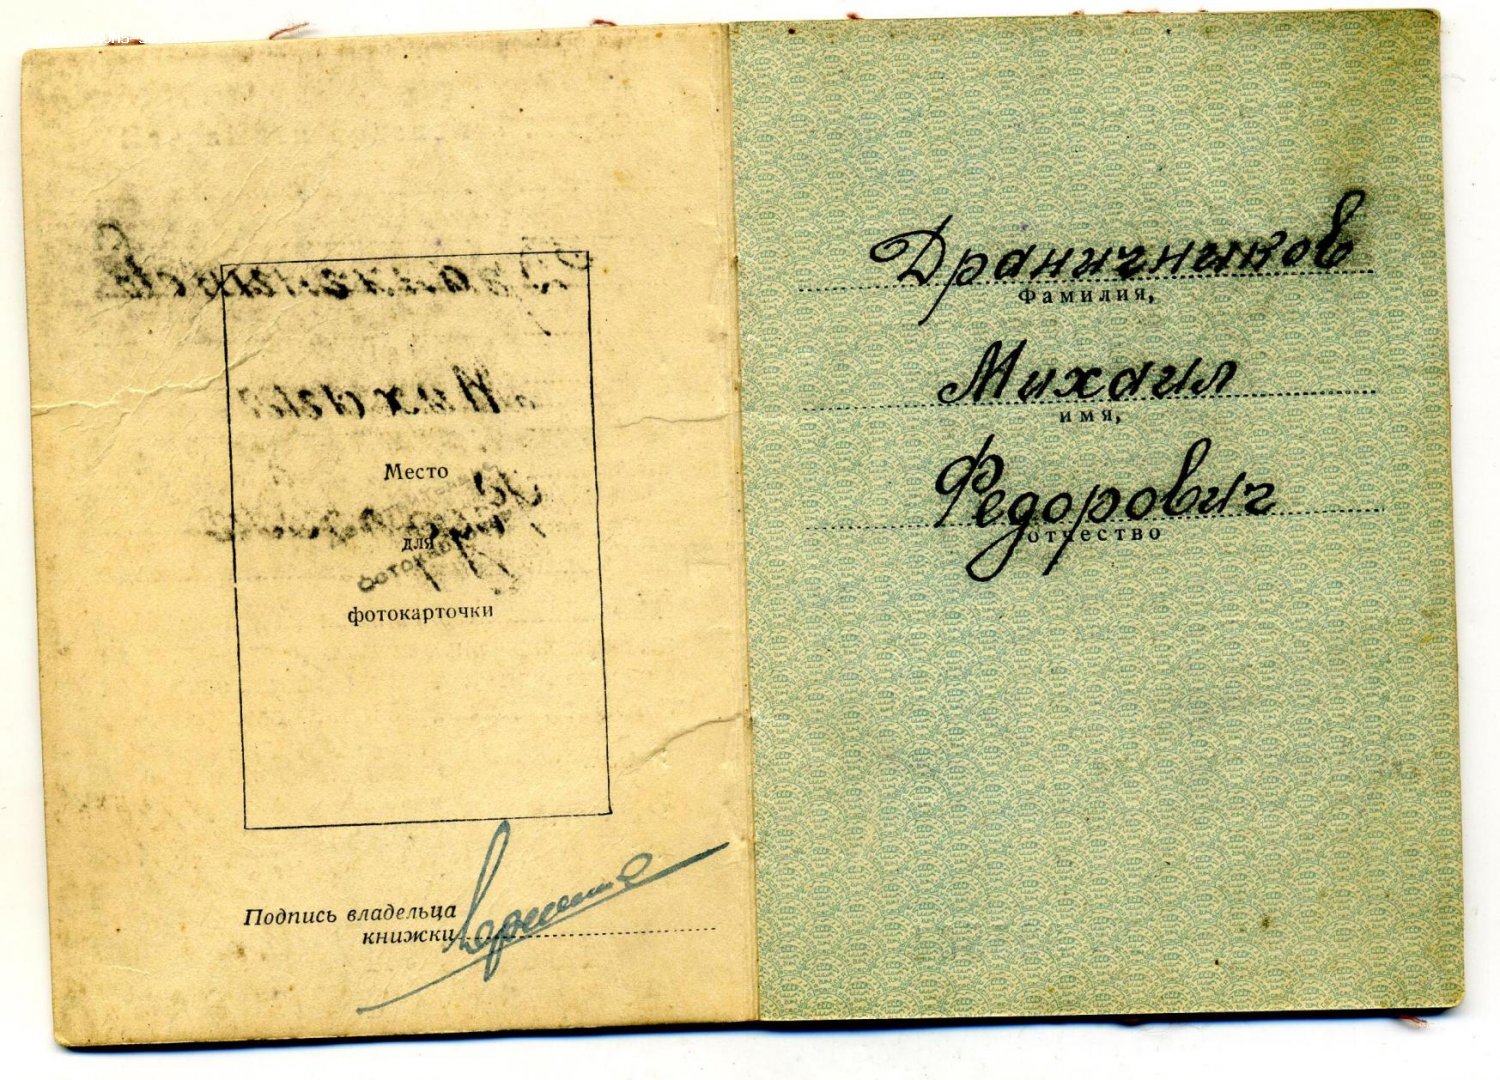 Место
для
фотокарточки
Подпись владельца
книжки
Драничников
Фамилия,
Михаил
имя,
Федорович
отчество